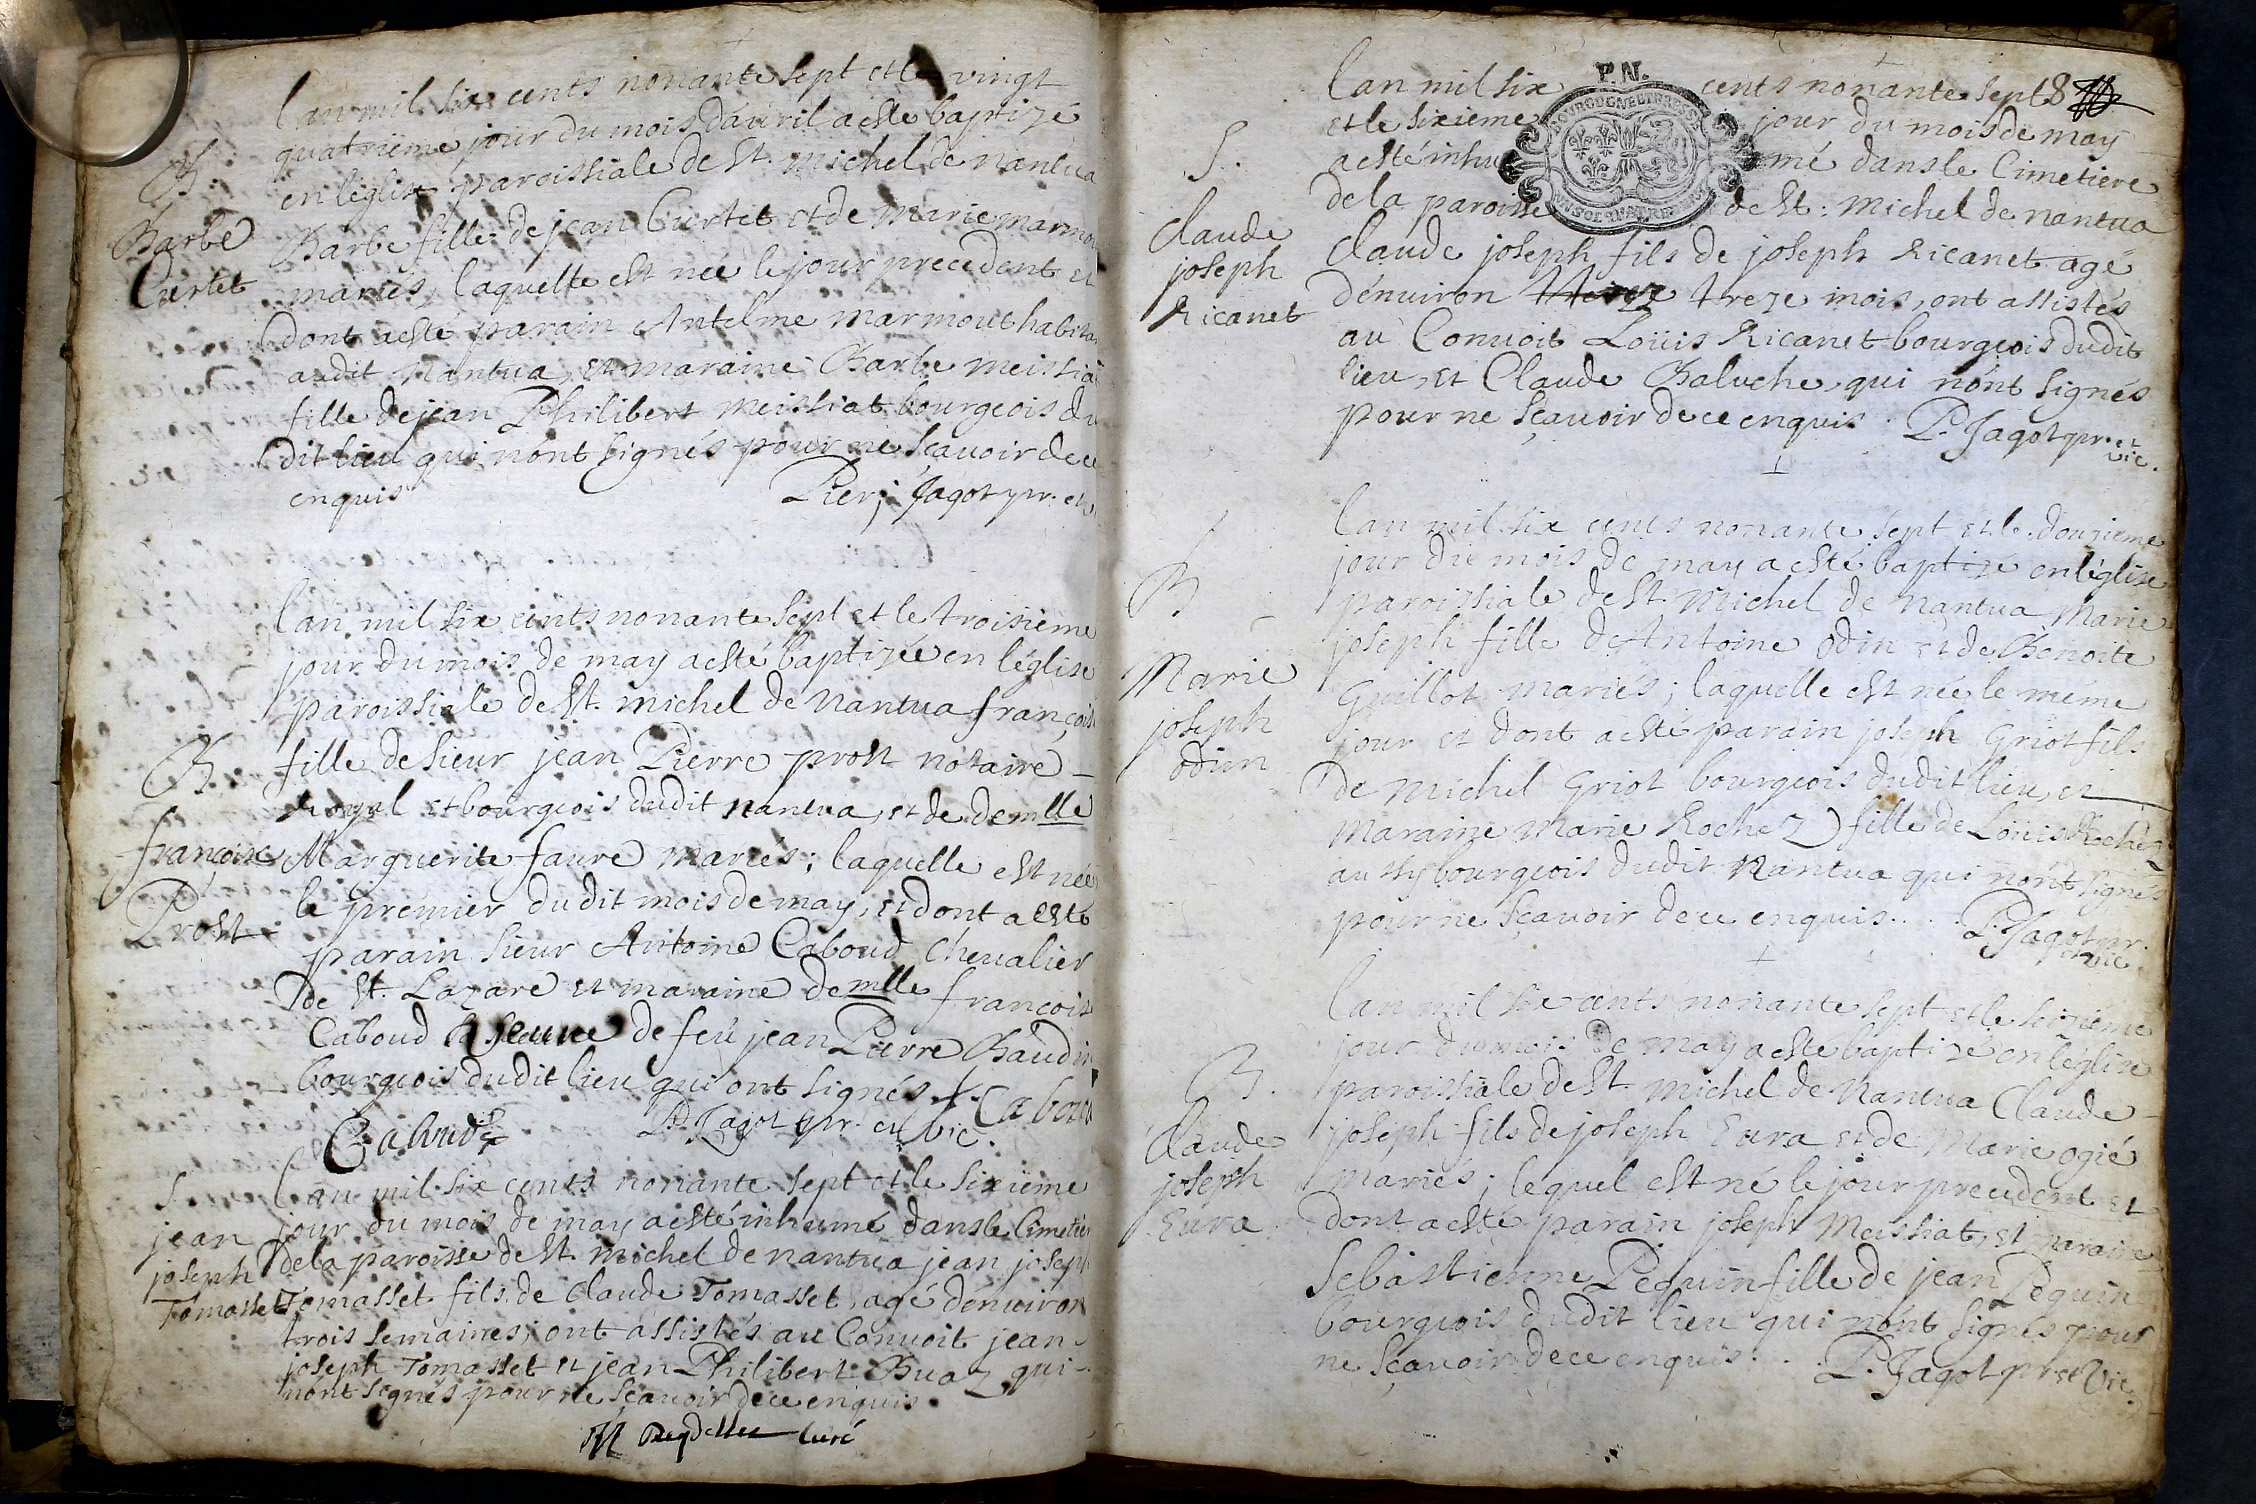 Lan mil six cents nonante sept et le vingt
quatrieme jour du mois dauril a este baptizé
B. en leglise paroissiale de St. michel de nantua
Barbe Barbe fille de jean Curtet et de marie marmou
Curtet mariés, laquelle est née le jour precedent et
dont a esté parain Antelme marmout habita
audit Nantua, et maraine Barbe meissia
fille de jean Philibert meissiat bourgeois du
dit lieu qui nont signés pour ne sçauoir de ce
enquis Pier; Jagot pr. et
Lan mil six cents nonante sept et le troisieme
jour du mois de may a esté baptizée en léglise
paroissiale de St. michel de Nantua françoise
B. fille de sieur jean Pierre prost notaire
Royal et bourgeois dudit nantua, et de demlle
françoise Marguerite faure mariés; laquelle est née
Prost le premier dudit mois de may, et dont a esté
parain sieur Antoine Caboud Cheualier
de St. Lazare et maraine demlle françoise
Caboud de feu jean Pierre Baudin
bourgeois dudit lieu qui ont signés f. Caboud
Caboud P. Jagot pr. et vic.
S. Lan mil six cents nonante sept et le sixieme
jean jour du mois de may a esté inhumé dans le Cimetier
joseph de la paroisse de St. michel de nantua jean joseph
Tomasset Tomasset fils de Claude Tomasset, agé denuiron
trois semaines; ont assistés au Conuoit jean
joseph Tomasset et jean Philibert Buaz qui
nont signés pour ne sçauoir de ce enquis.
Reydellet curé
P.N.
Lan mil six cents nonante sept 8
et le sixieme jour du mois de may
S. a esté inhumé dans le Cimetiere
de la paroisse de St: michel de nantua
Claude Claude joseph fils de joseph Ricanet agé
joseph dénuiron treze mois, ont assistés
Ricanet au Conuoit Loüis Ricanet bourgeois dudit
lieu, et Claude Baluche qui nont signés
pour ne sçauoir de ce enquis. P. Jagot pr. et
vic.
Lan mil six cents nonante sept et le douzieme
jour du mois de may a esté baptizé en léglise
B paroissiale de St. Michel de nantua Marie
joseph fille de Antoine Odin et de Benoite
Marie Guillot mariés; laquelle est née le méme
joseph jour et dont a esté parain joseph Griot fils
odin de Michel Griot bourgeois dudit lieu, et
maraine Marie Rochez fille de Loüis Rochez
aussy bourgeois dudit Nantua qui nont signés
pour ne sçauoir de ce enquis. P. Jagot pr.
et vic.
Lan mil six cents nonante sept et le seizieme
jour du mois de may a esté baptizé en léglise
B. paroissiale de St. Michel de Nantua Claude
Claude joseph fils de joseph Eura et de Marie ogié
joseph mariés; lequel est né le jour precedent et
Eura dont a esté parain joseph Meissiat, et maraine
Sebastienne Pequin fille de jean Pequin
bourgeois dudit lieu qui nont signés pour
ne sçauoir de ce enquis. P. Jagot pr et vic.